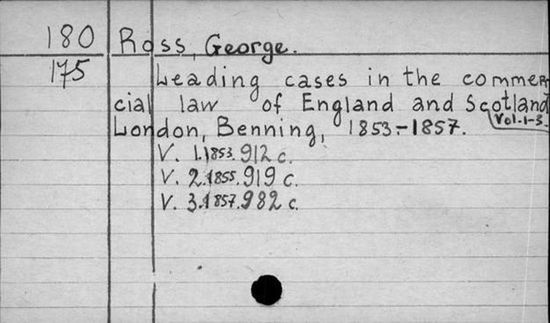 180 Ross, George.
175 Leading cases in the commer
cial law of England and Scotland
Vol. 1-3.
London, Benning, 1853-1857.
V. 1. 1853. 912 c.
V. 2. 1855. 919 c.
V. 3. 1857. 982 c.